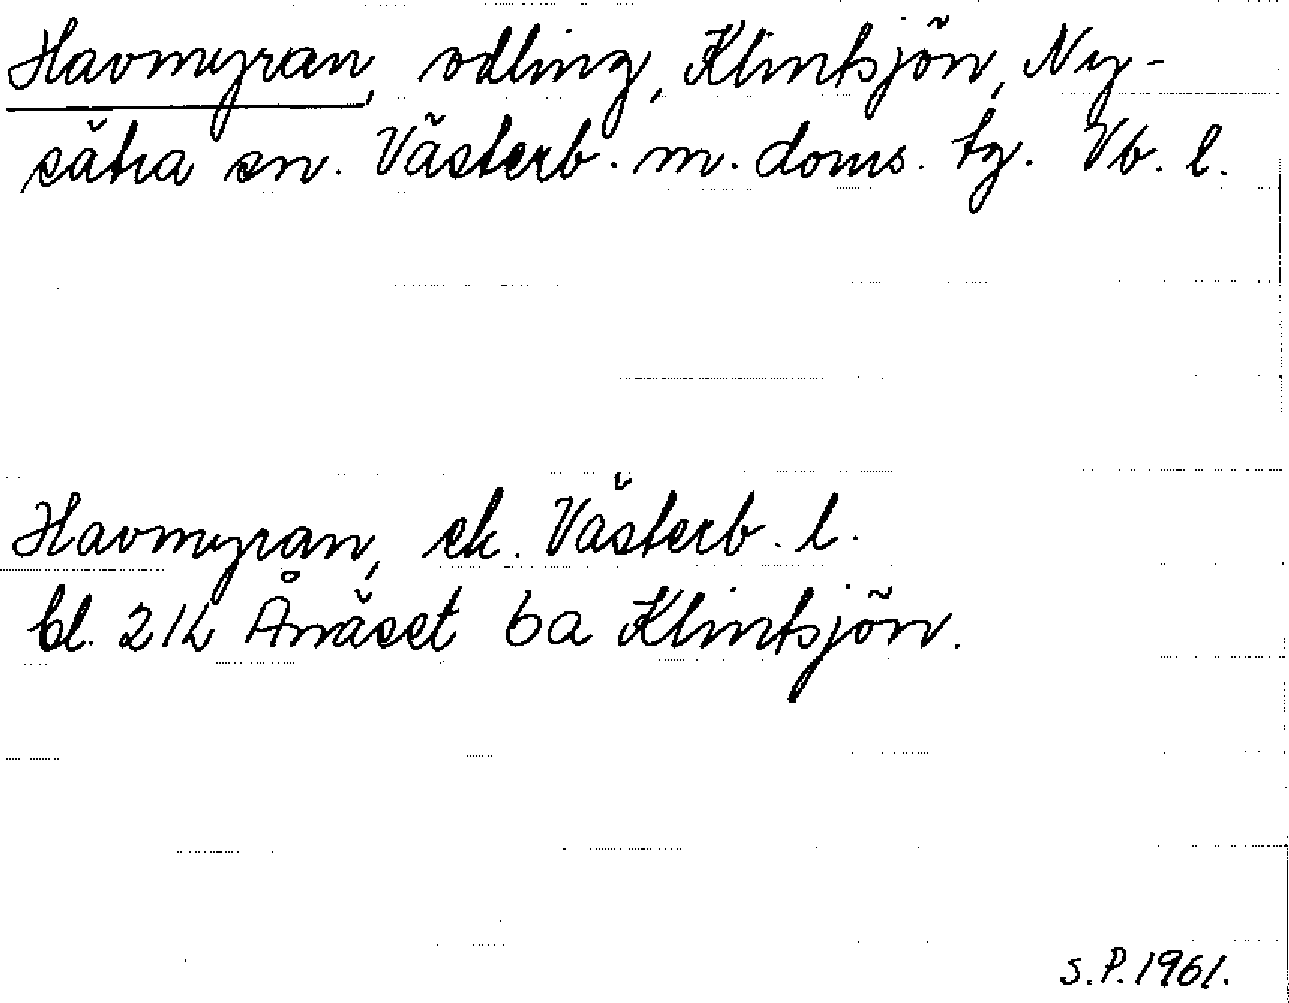 Havmyran, odling, Klintsjön, Ny-
sätra sn. Västerb. m. doms. tg. Vb. l.
Havmyran, ek. Västerb. l.
bl. 21L Ånäset 6a Klintsjön.
S.P. 1961.